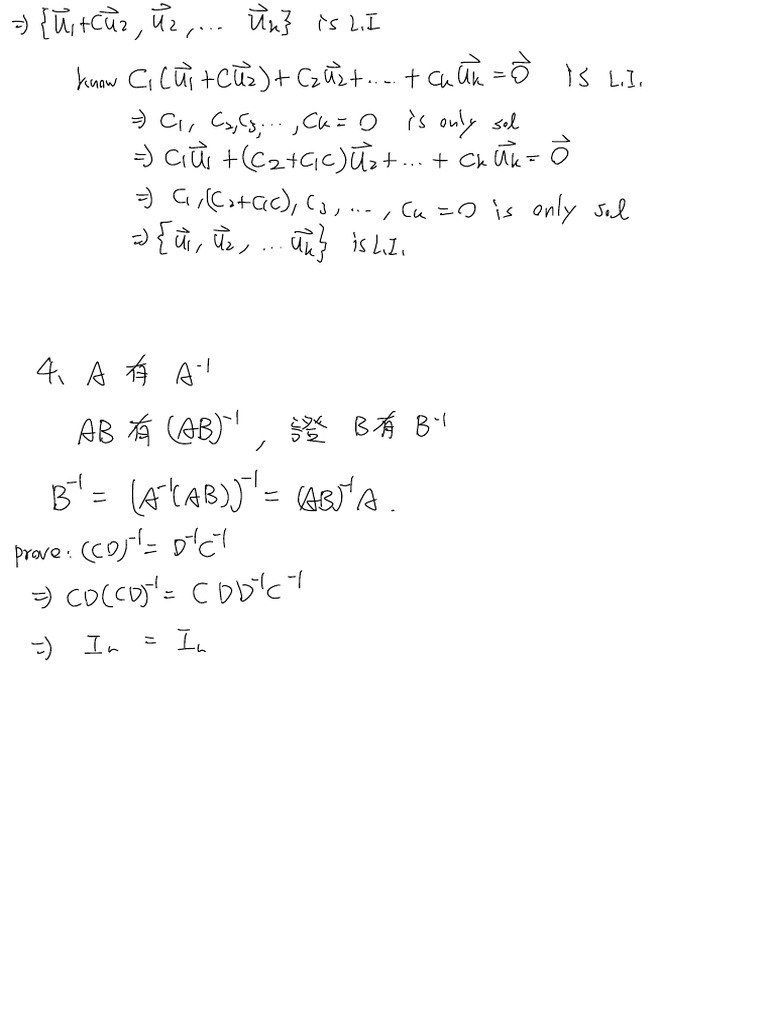 ⇒ {u⃗₁+cu⃗₂, u⃗₂, ... u⃗ₖ} is L.I
know C₁(u⃗₁+Cu⃗₂)+C₂u⃗₂+....+Cₖu⃗ₖ=0⃗ is L.I.
⇒ C₁, C₂,C₃, ..., Cₖ=0 is only sol
⇒ C₁u⃗₁+(C₂+C₁C)u⃗₂+...+Cₖu⃗ₖ=0⃗
⇒ C₁,(C₂+C₁C), C₃, ..., Cₖ=0 is only sol
⇒ {u⃗₁, u⃗₂, ... u⃗ₖ} is L.I.
4、 A 有 A⁻¹
AB 有 (AB)⁻¹, 證 B有 B⁻¹
B⁻¹ = (A⁻¹(AB))⁻¹ = (AB)⁻¹A.
prove: (CD)⁻¹ = D⁻¹C⁻¹
⇒ CD(CD)⁻¹ = CDD⁻¹C⁻¹
⇒ Iₙ = Iₙ